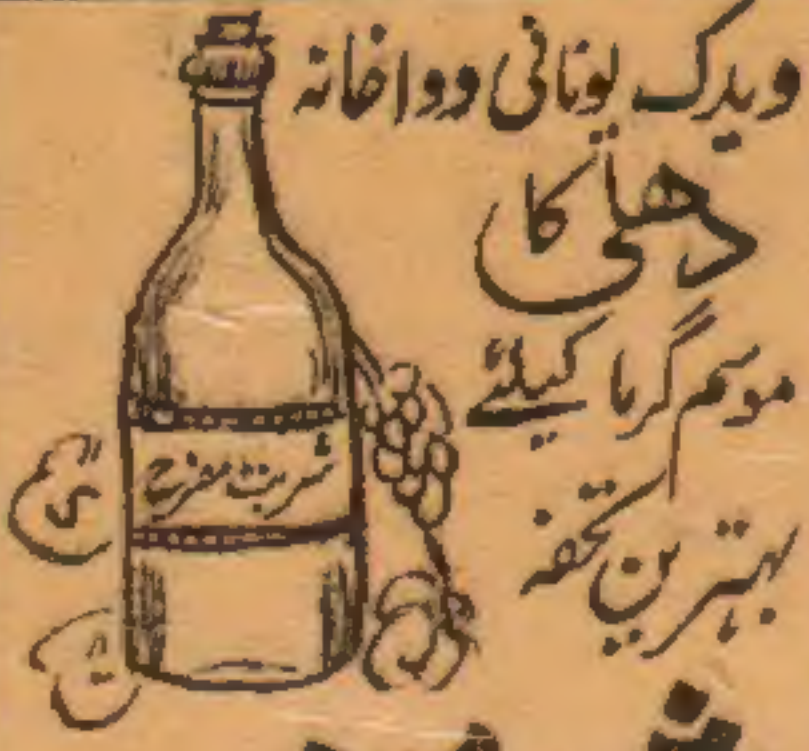 ویدک یونانی دواخانہ
دھلی کا
موسم گرما کیلئے
بہترین تحفہ
شربت مفرح